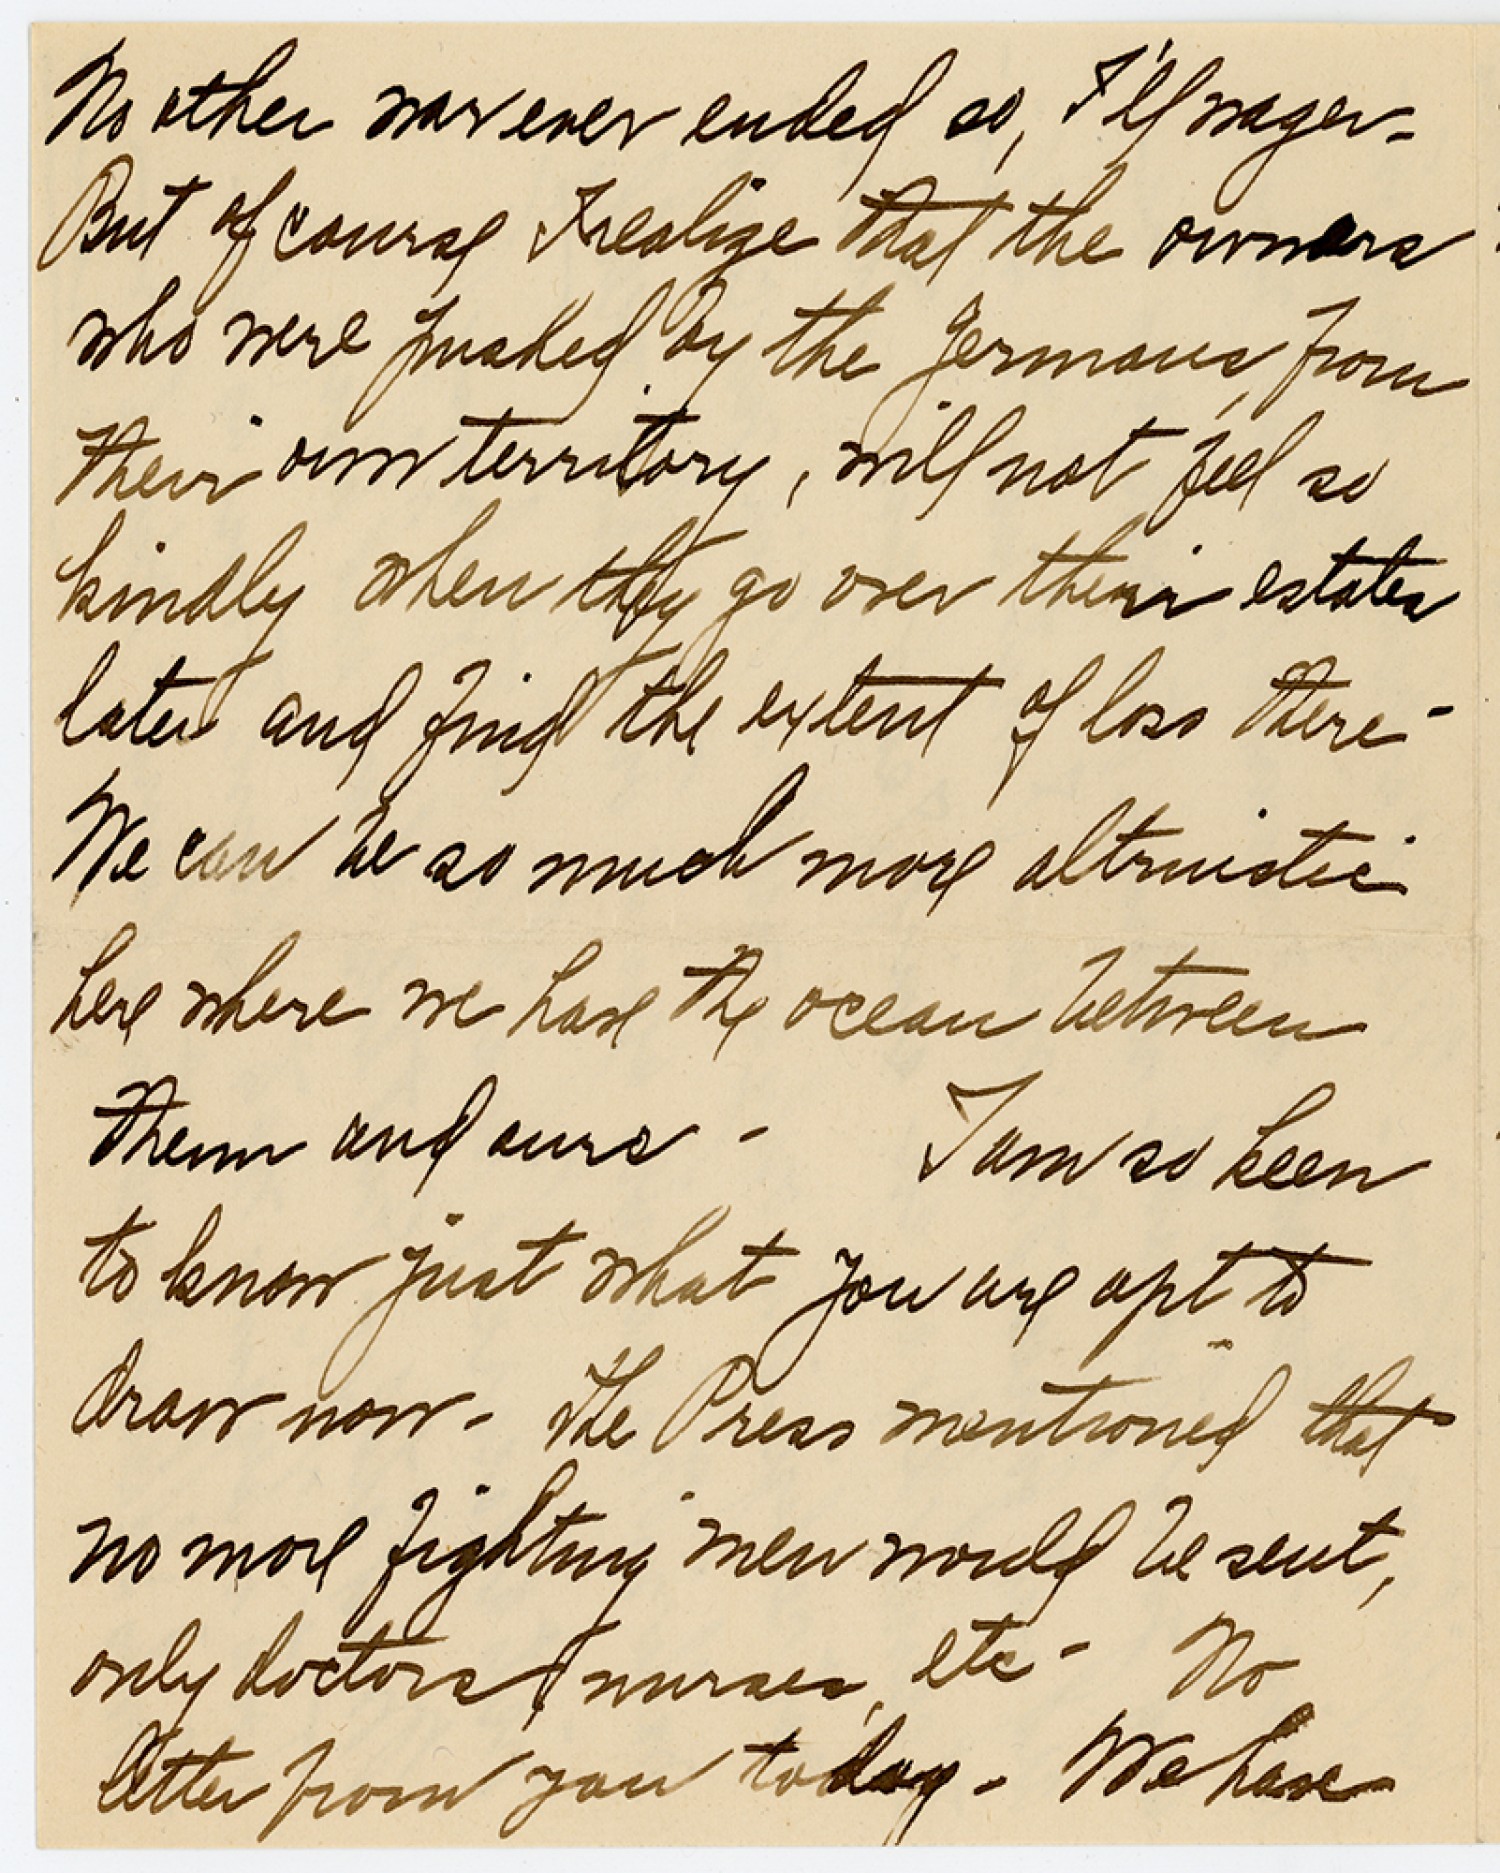 No other war ever ended so, I'll wager-
But of course I realize that the owners
who were pushed by the Germans, from
their own territory, will not feel so
kindly when they go over their estates
later and find the extent of loss there-
We can be so much more altruistic
here where we have the ocean between
them and ours - I am so keen
to know just what you are apt to
draw now- The Press mentioned that
no more fighting men would be sent,
only doctors, nurses, etc- No
letter from you today- We have